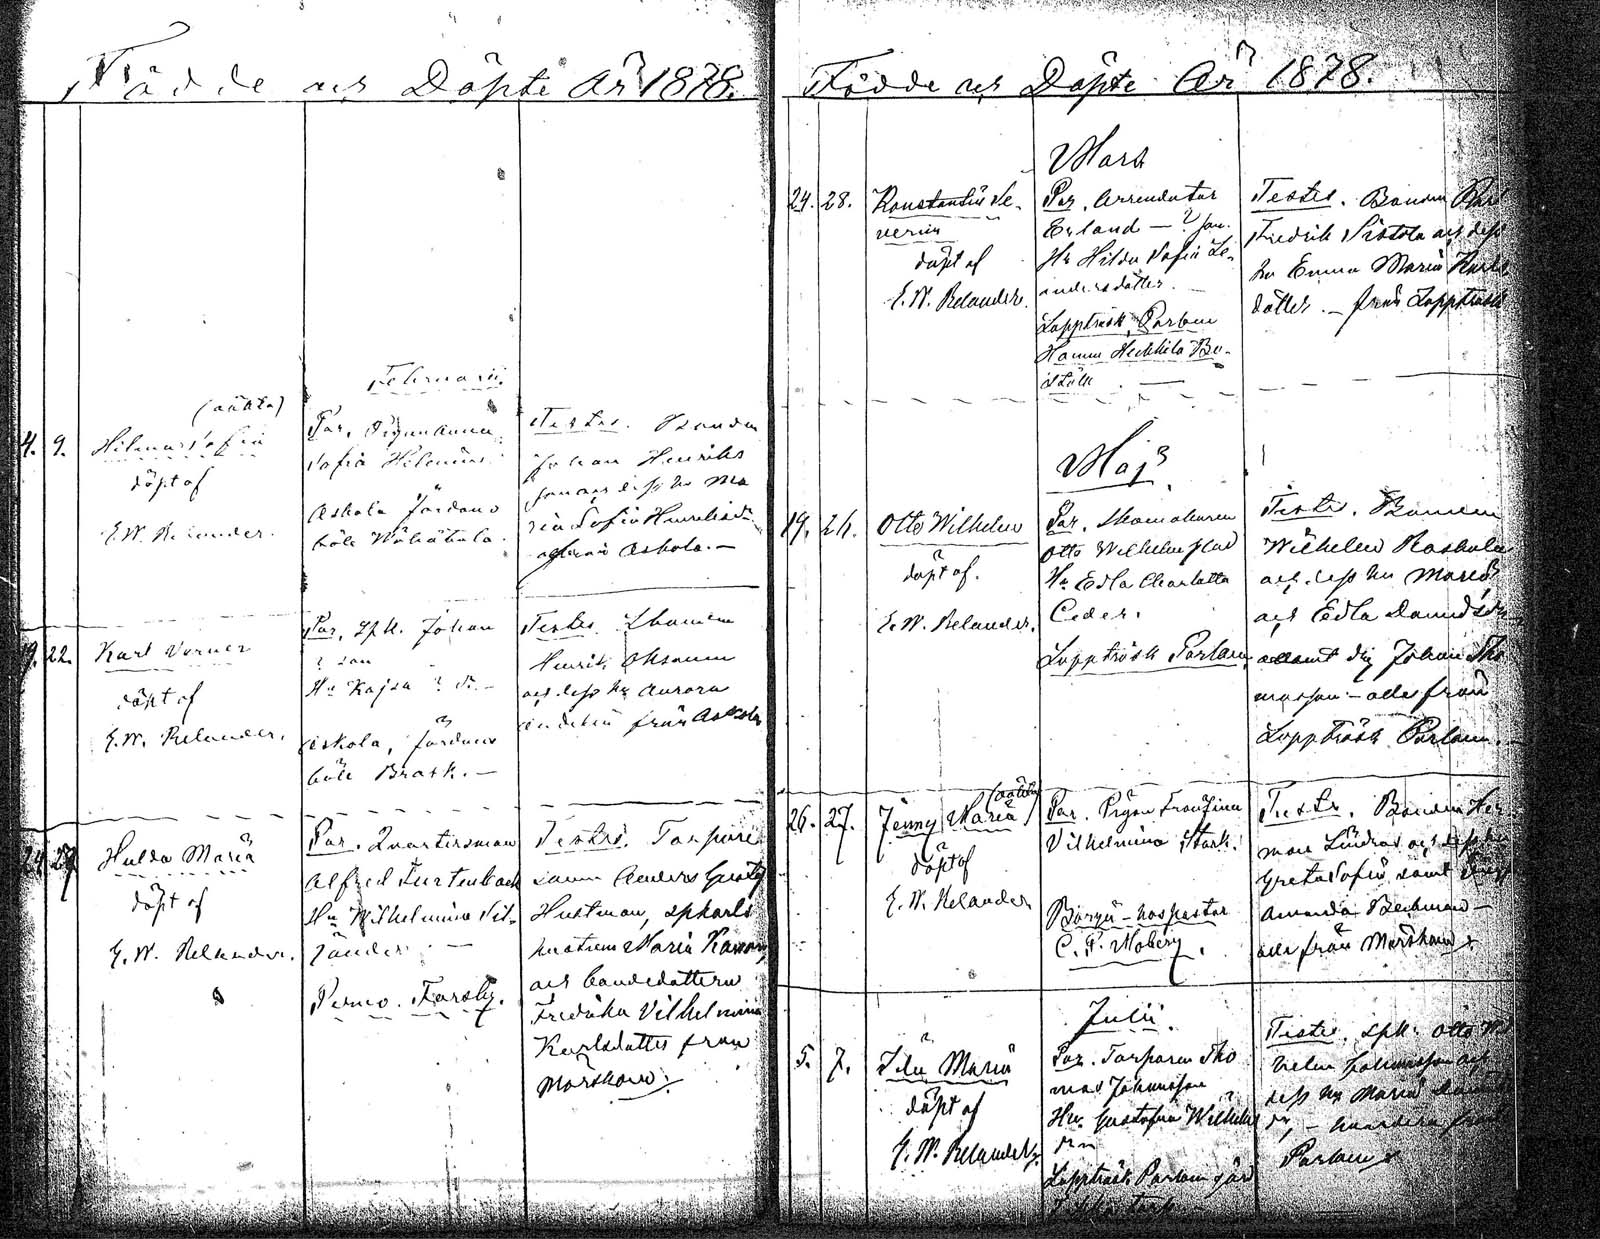 Födde och Döpte År 1878.
Februarii.
4. 9.
(oäkta)
Hilma Sofia
döpt af
E. W. Relander.
Par. Pigan Anna
Sofia Helenius
Askola Jordans
böle Wähätala.
Testes. Bonden
Johan Henriks
son och dess hu Ma
ria Sofia Henriksdr
från Askola. —
19. 22.
Karl Verner
döpt af
E. W. Relander.
Par. Sph. Johan
? son
Hu Kajsa ? dr. —
Askola, Jordans
böle Brask. —
Testes.
Henrik Oksanen
och dess hu Aurora
från Askola
24 27
Hulda Maria
döpt af
E. W. Relander.
Par. Quartersman
Alfred Furtenback
Hu Wilhelmina Sil-
fånder —
Perno. Forsby.
Testes. Torpare
sonen Anders Gustaf
Hustman, spkarls
enkan Maria
och bondedottern
Fredrika Vilhelmina
Karlsdotter från
Mörskom.
Födde och Döpte År 1878.
Mars
24. 28.
Konstantin Se-
verin
döpt af
E. W. Relander.
Par. Arrendator
Erland — ? son.
Hu Hilda Sofia Le-
andersdotter.
Lappträsk, Porlom
Hamm Heikkilä Bo-
ställe. —
Testes. Bonden Karl
Fredrik Sistola och dess
hu Emma Maria Karls
dotter. — från Lappträsk
Maj
19. 26.
Otto Wilhelm
döpt af.
E. W. Relander.
Par. Skomakaren
Otto Wilhelm Glad
Hu Edla Charlotta
Ceder.
Lappträsk Porlom
Testes. Bonden
Wilhelm Koskela
och dess hu Maria
och Edla
Johan Tho
masson — alla från
Lappträsk Porlom. —
26. 27.
(oäkta)
Jenny Maria
döpt af
E. W. Relander
Par. Pigan
Vilhelmina Stark.
Borgå — hospastor
C. F. Moberg.
Testes. Bonden Her
man Lindros och dess hu
Greta Sofia samt
Amanda Beckman —
alla från Mörskom
Julii.
5. 7.
Ida Maria
döpt af
E. W. Relander
Par. Torparen Tho
mas Johansson
Hu Gustafva Wilhelms
dr
Lappträsk Porlom gård
torp
Testes. Sph. Otto Wil
helm Johansson och
dess hu Maria
dr, — från
Porlom